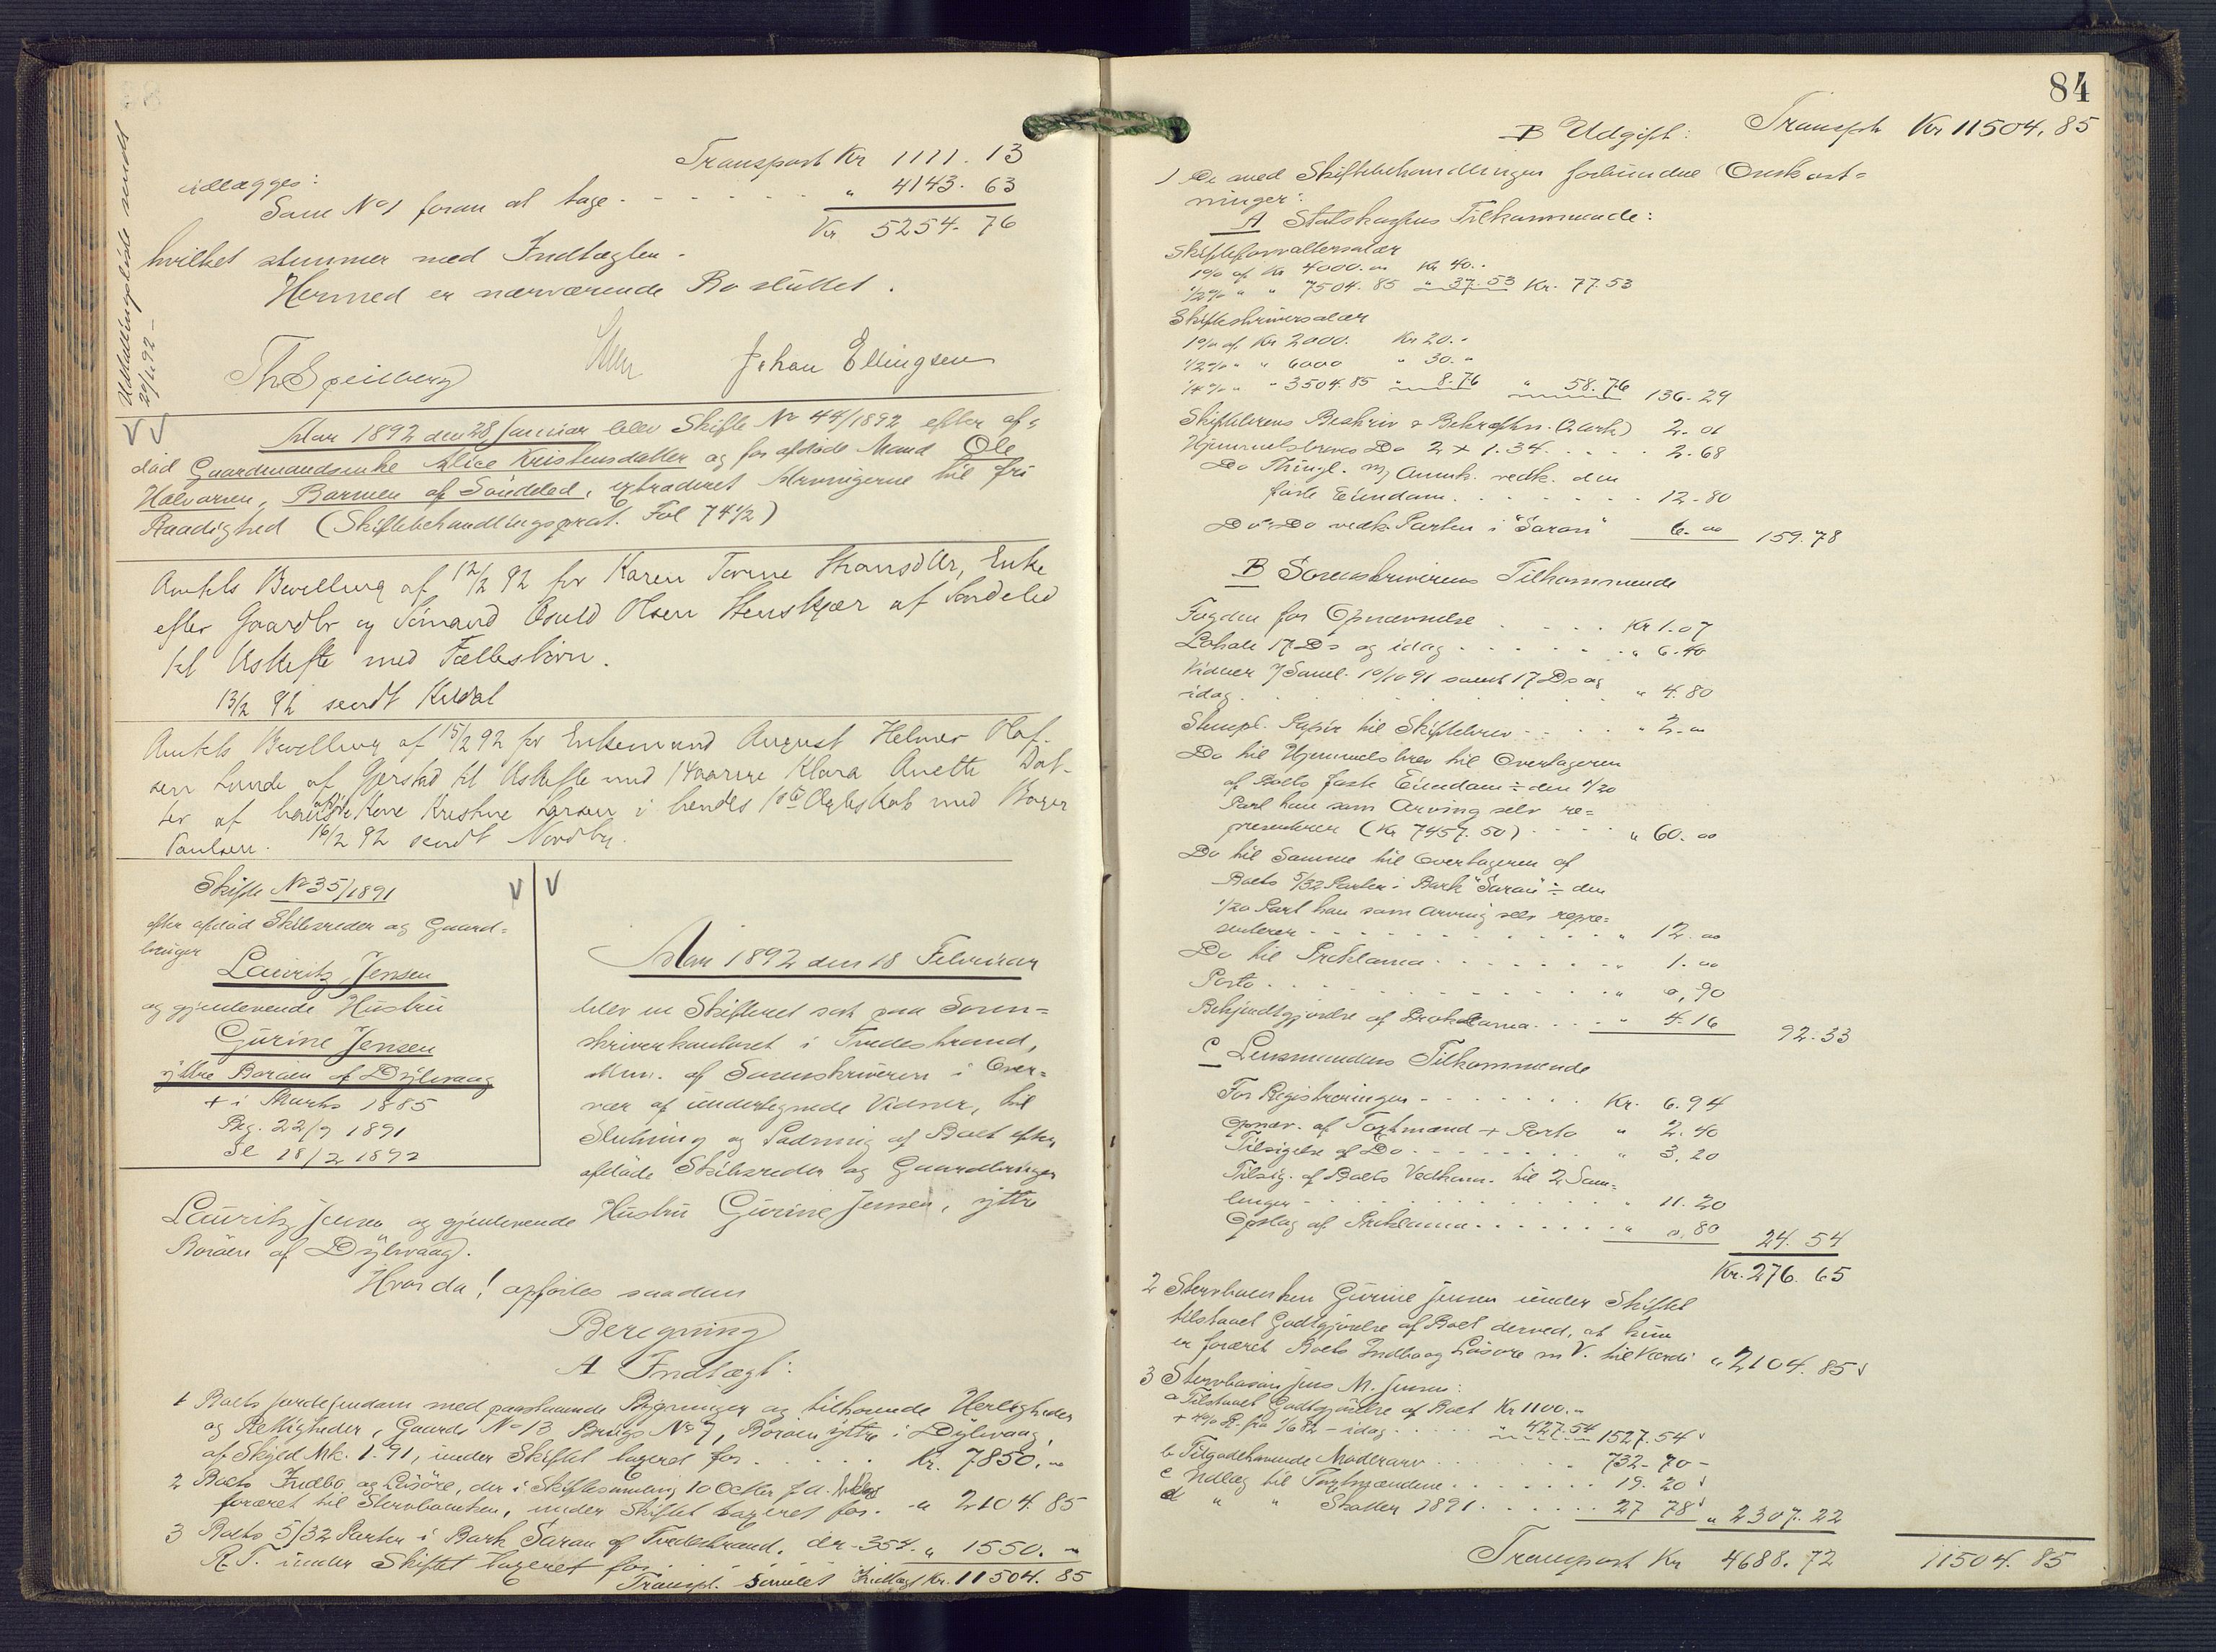 Udskiftningsliste sendt
20/1 92 –
Transport Kr 1111. 13
idlægges:
Som No 1 foran at tage . . . . . " 4143. 63
Kr 5254. 76
hvilket stemmer med Indtægten.
Hermed er nærværende Bo sluttet.
Th Speilberg Johan Ellingsen
Aar 1892 den 28 Januar blev Skifte No 44/1892 efter af-
død Gaardmandsenke Alice Kristensdatter og før afdøde Mand Ole
Halvorsen, Barmen af Søndeled, extraderet Arvingerne til fri
Raadighed (Skiftebehandlingsprot. Fol 74 1/2)
Amtets Bevilling af 12/2 92 for Karen Torine Hansdtr, Enke
efter Gaardbr og Sømand Osuld Olsen Stenskjær af Søndeled
til Uskifte med Fællesbørn.
13/2 92 sendt
Amtets Bevilling af 15/2 92 for Enkemand August Helmer Olaf-
sen Lunde af Gjerstad til Uskifte med 14aarige Klara Anette Dat-
ter af hans afdøde Kone Kristine Larsen i hendes 1ste Ægteskab med
Paulsen. 16/2 92 sendt Nordby.
Skifte No 35/1891
efter afdød Skibsreder og Gaard-
bruger
Lauritz Jensen
og gjenlevende Hustru
Gurine Jensen
yttre Borøen af Dybvaag
+ i Marts 1885
Beg. 22/9 1891
Sl 18/2 1892
Aar 1892 den 18 Februar
blev en Skifteret sat paa Soren-
skriverkontoret i Tvedestrand,
Adm. af Sorenskriveren i Over-
vær af undertegnede Vidner, til
Slutning og Lodning af Boet efter
afdøde Skibsreder og Gaardbruger
Lauritz Jensen og gjenlevende Hustru Gurine Jensen, yttre
Borøen af Dybvaag.
Hvorda! opførtes saadan
Beregning
A Indtægt:
1 Boets Jordejendom med paastaaende Bygninger og tilhørende Herligheder
og Rettigheder, Gaards No 13, Brugs No 7, Borøen yttre i Dybvaag,
af Skyld Mk. 1.91, under Skiftet taxeret for . . . . . Kr. 7850. "
2 Boets Indbo og Løsøre, der i Skiftesamling 10 Octbr f.A. blev
foræret til Stervboenken, under Skiftet taxeret for. " 2104. 85
3 Boets 5/32 Parter i Bark Saron af Tvedestrand, dr. 354
R. T. under Skiftet taxeret for . . . . " 1550. "
Transpt. samlet Indtægt Kr. 11504. 85
84
B Udgift: Transpt Kr 11504. 85
1 De med Skiftebehandlingen forbundne Omkost-
ninger:
A Statskassens Tilkommende:
Skifteforvaltersalær
1% af Kr 4000. " Kr 40. "
1/2% " " 7504. 85 " 37.53 Kr. 77.53
Skifteskriversalær
1% af Kr 2000. Kr 20. "
1/2% " " 6000 " 30. "
1/4% " " 3504. 85 " 8.76 " 58. 76 136. 29
Skiftebrevs Beskriv. & Bekræftn. (2 ark) 2. 01
Hjemmelsbreves Do 2 x 1.34 . . . . . 2. 68
Do Thingl. m/ Anmk. vedk. den
faste Eiendom . . . . . . . . 12. 80
Do Do vedk. Parten i "Saron" 6. 00 159. 78
B Sorenskriverens Tilkommende
Fogden for Opnævnelse . . . . Kr 1. 07
Lokale 17 Ds og idag . . . . . . " 6. 40
Vidner 7 Saml. 10/10 91 samt 17 Ds og
idag . . . . . . . . " 4. 80
Stempl. Papir til Skiftebrev . . . . " 2. 00
Do til Hjemmelsbrev til Overtageren
af Boets faste Eiendom ÷ den 1/20
Part han som Arving selv re-
præsenterer (Kr 7457. 50) . . . . " 60. 00
Do til Samme til Overtageren af
Boets 5/32 Parter i Bark "Saron" ÷ den
1/20 Part han som Arving selv repræ-
senterer . . . . . . . . . . " 12. 00
Do til Proklama . . . . . . . " 1. 00
Porto . . . . . . . . . . . " 0, 90
Bekjendtgjørelse af Proklama . . . . " 4. 16 92. 33
C Lensmandens Tilkommende
For Registreringen . . . . . . . Kr. 6. 94
Opnævn. af Taxtmænd + Porto " 2. 40
Tilsigelse af Do . . . . . . . " 3. 20
Tilsig. af Boets Vedkom. til 2 Sam-
linger . . . . . . . . . . " 11. 20
Opslag af Proklama . . . . . . . " 0, 80 24. 54
Kr. 276. 65
2 Stervboenken Gurine Jensen under Skiftet
tilstaaet Godtgjørelse af Boet derved, at hun
er foræret Boets Indbo og Løsøre m V. til Værdi " 2104. 85
3 Stervbosøn Jens M. Jensen:
a Tilstaaet Godtgjørelse af Boet Kr 1100. "
+ 4% R. fra 1/6 82 – idag . . . . . " 427.54 1527. 54
b Tilgodehavende Mødrearv . . . . . . . 732. 70 –
c Udlæg til Taxtmændene . . . . . . . 19. 20
d " " Skatter 1891 . . . . . . 27 78 " 2307. 22
Transport Kr 4688. 72 11504. 85